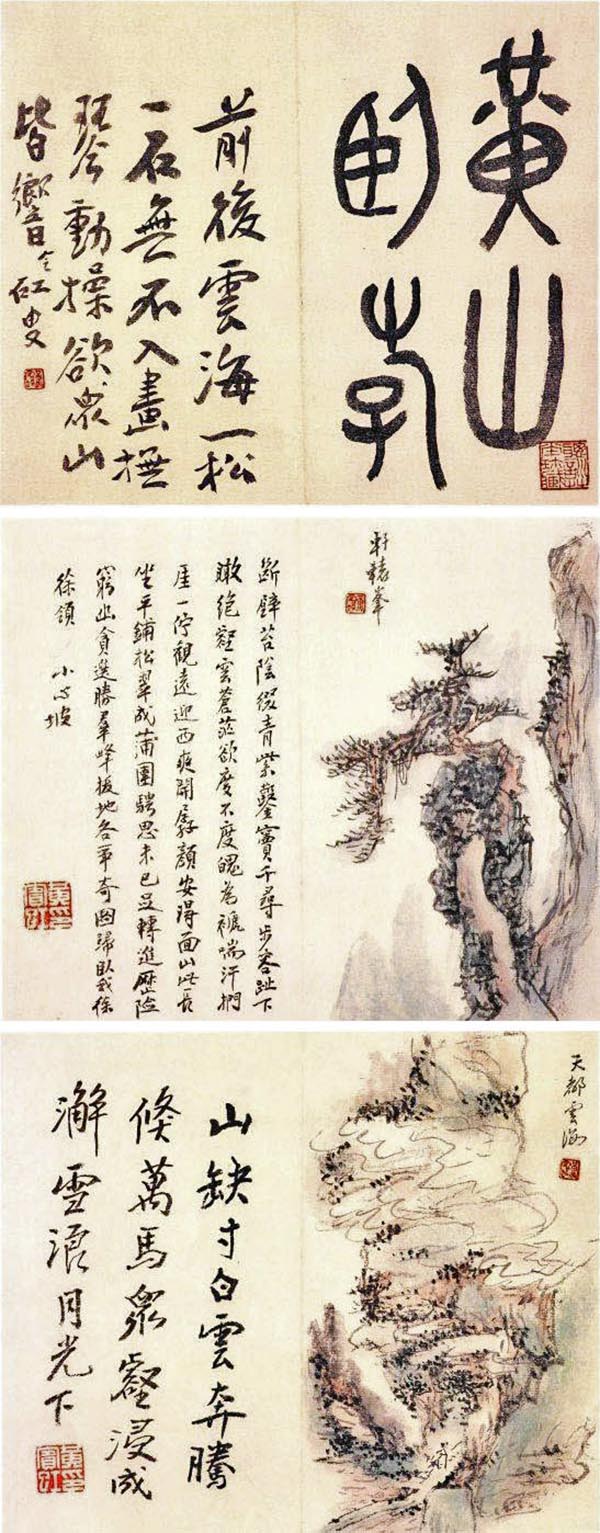 黃山
臥斿
前後雲海一松
一石無不入畫撫
琴動操欲眾山
皆響 虹叟
軒轅峯
斷壁苔陰綴青紫鑿竇千尋步容趾下
瞰絕壑雲蒼茫欲度不度魄為褫喘汗捫
厓一佇觀遠迎西爽開孱顏安得面山此長
坐平鋪松翠成蒲團騁思未已足轉進歷險
窮幽貪選勝羣峰拔地各爭奇圖歸臥我徐
徐領 小心坡
天都雲海
山缺寸白雲奔騰
倏萬馬眾壑浸成
澥雪浪月光下